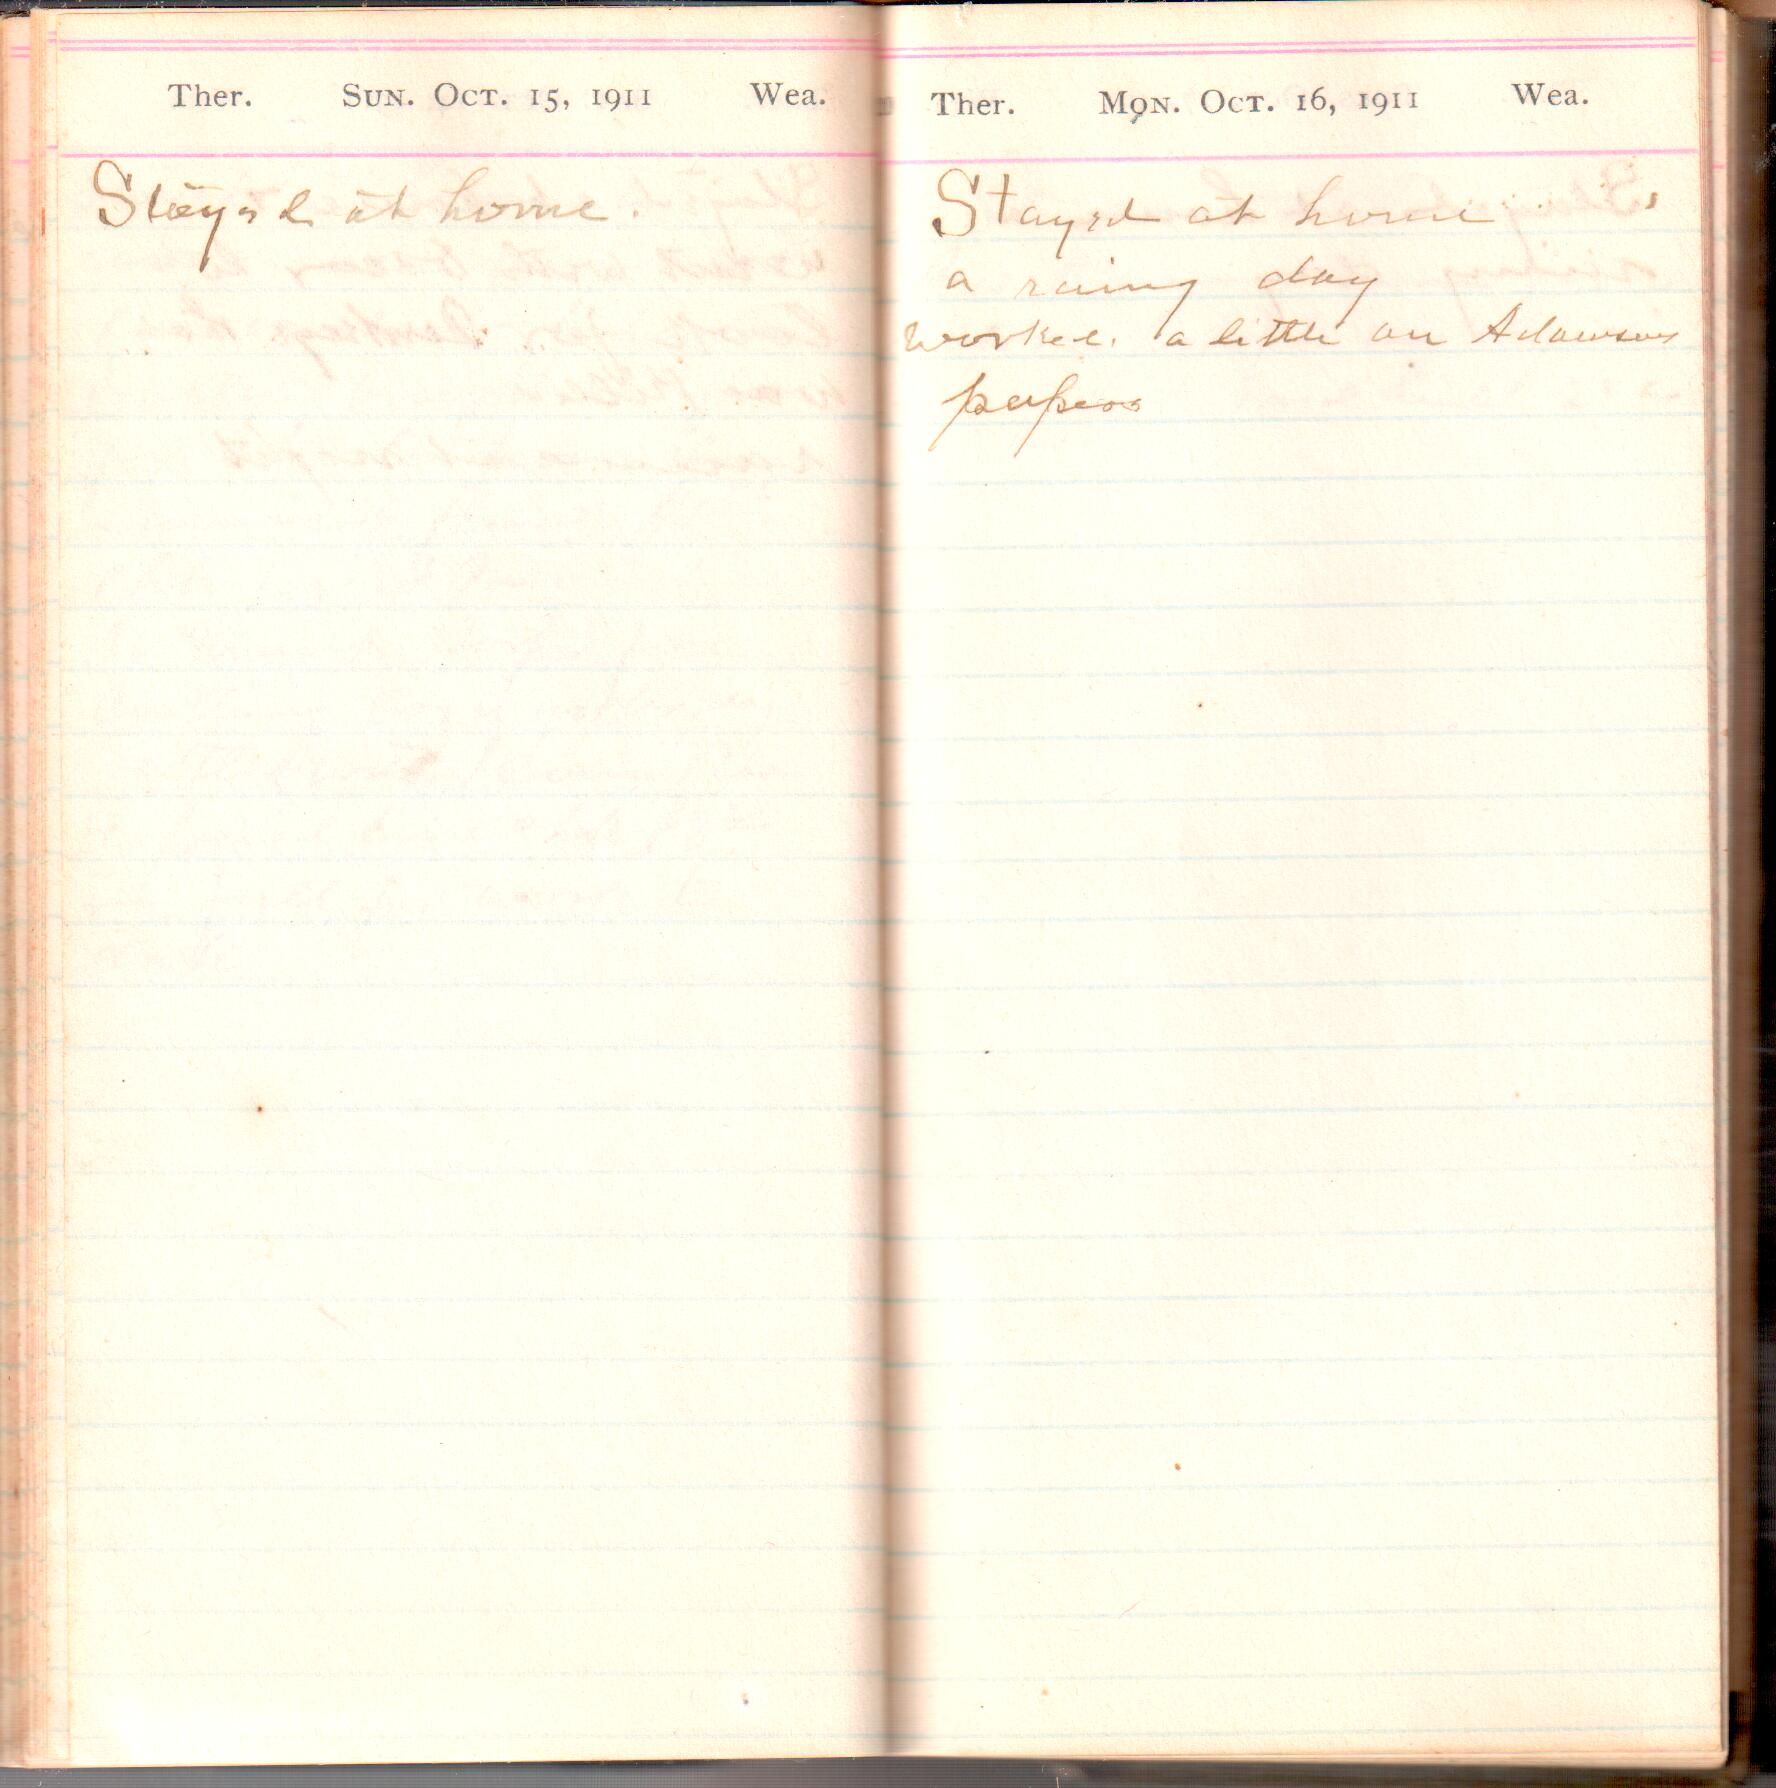 Ther. Sun. Oct. 15, 1911 Wea.
Stayed at home.
Ther. Mon. Oct. 16, 1911 Wea.
Stayed at home
a rainy day
worked a little on Adamsons
papers